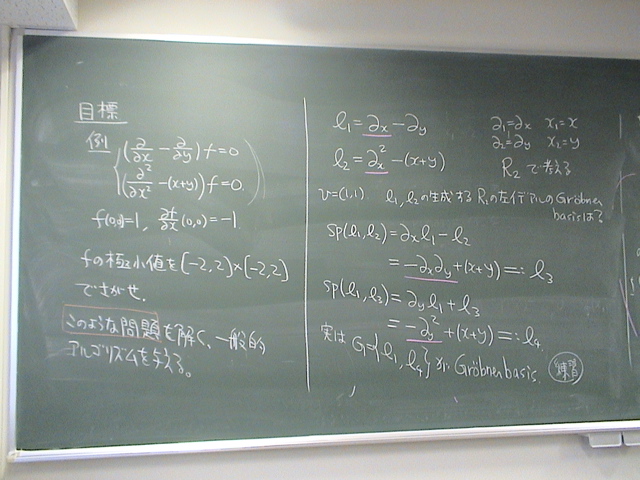 目標
例 (∂/∂x - ∂/∂y) f = 0
(∂²/∂x² - (x+y)) f = 0
f(0,0)=1, ∂f/∂x (0,0) = -1.
fの極小値を [-2,2]×[-2,2]
でさがせ.
このような問題を解く、一般的
アルゴリズムを与える。
ℓ₁ = ∂x - ∂y
ℓ₂ = ∂x² - (x+y)
∂₁=∂x x₁=x
∂₂=∂y x₂=y
R₂ で考える
v=(1,1). ℓ₁, ℓ₂の生成する R₂の左イデアルのGröbner
basisは?
sp(ℓ₁,ℓ₂) = ∂xℓ₁ - ℓ₂
= -∂x∂y + (x+y) =: ℓ₃
sp(ℓ₁,ℓ₃) = ∂yℓ₁ + ℓ₃
= -∂y² + (x+y) =: ℓ₄.
実は G={ℓ₁, ℓ₄} が Gröbner basis.
練習